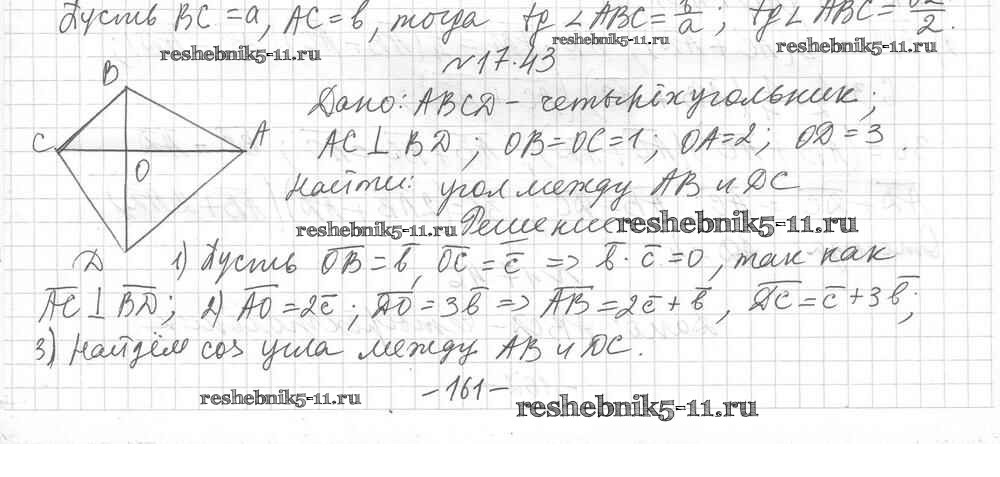 Пусть BC = a, AC = b, тогда tg ∠ABC = b/a ; tg ∠ABC = /2.
reshebnik5-11.ru reshebnik5-11.ru reshebnik5-11.ru
№17.43
B
Дано: ABCD – четырёхугольник;
C A
AC ⊥ BD ; OB = OC = 1 ; OA = 2 ; OD = 3.
O
Найти: угол между AB и DC
reshebnik5-11.ru Решение reshebnik5-11.ru
D 1) Пусть OB̅ = b̅, OC̅ = c̅ => b̅ · c̅ = 0, так как
AC̅ ⊥ BD̅; 2) AO̅ = 2c̅ ; DO̅ = 3b̅ => AB̅ = 2c̅ + b̅ , DC̅ = c̅ + 3b̅;
3) Найдём cos угла между AB и DC.
reshebnik5-11.ru –161– reshebnik5-11.ru